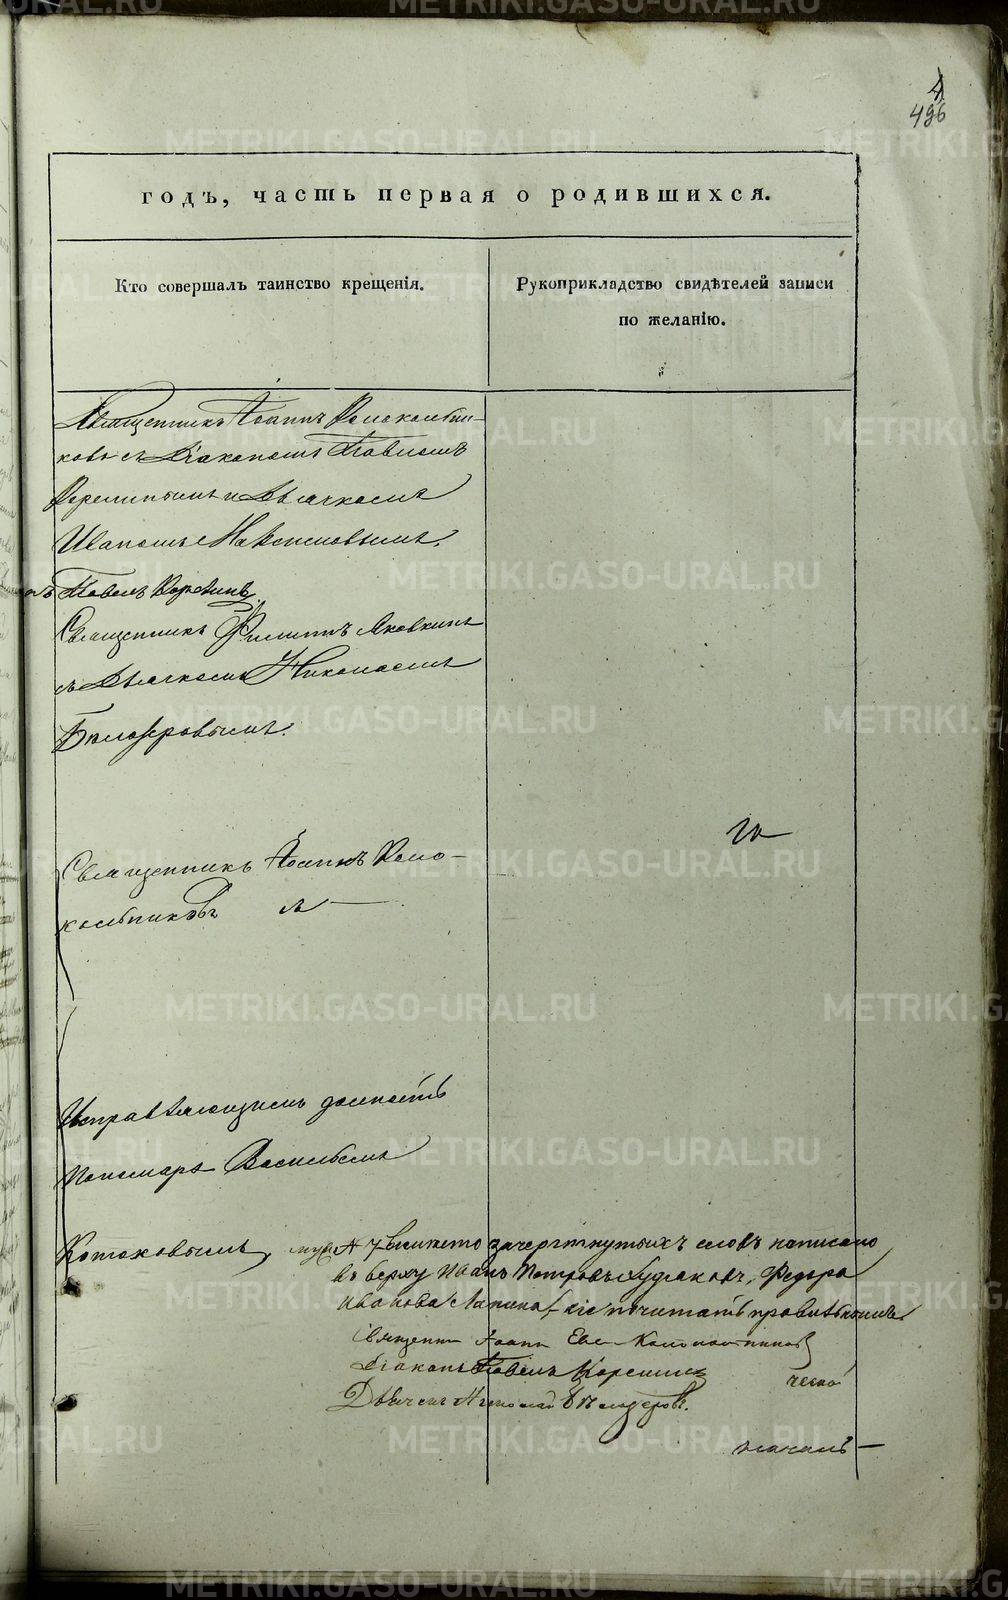 496
годъ, часть первая о родившихся.
Кто совершалъ таинство крещенія.
Рукоприкладство свидѣтелей записи
по желанію.
Священникъ Іоаннъ Колокольни-
ковъ съ Діакономъ Павломъ
Корелинымъ и Дьячкомъ
Иваномъ Максимовымъ.
Павелъ Корелинъ
Священникъ Филиппъ Яковкинъ
съ Дьячкомъ Николаемъ
Бѣлозеровымъ.
Священникъ Іоаннъ Коло-
кольниковъ
Исправляющимъ должность
Пономаря Васильемъ
Котоховымъ,
зачеркнутыхъ словъ написано
въ верху Иванъ Петровъ Худяковъ, Федора
Иванова сіе почитать правильнымъ.
Священникъ Іоаннъ Колокольниковъ
Діаконъ Павелъ Корелинъ
Дьячекъ Николай Бѣлозеровъ.
METRIKI.GASO-URAL.RU